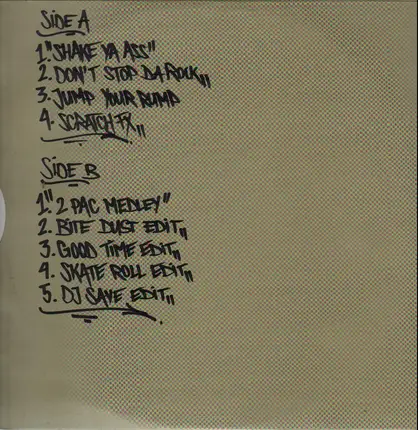 SIDE A
1. "SHAKE YA ASS"
2. DON'T STOP DA ROCK"
3. JUMP YOUR RUMP
4. SCRATCH FX"
SIDE B
1. "2 PAC MEDLEY"
2. BITE DUST EDIT"
3. GOOD TIME EDIT"
4. SKATE ROLL EDIT"
5. DJ SAVE EDIT"